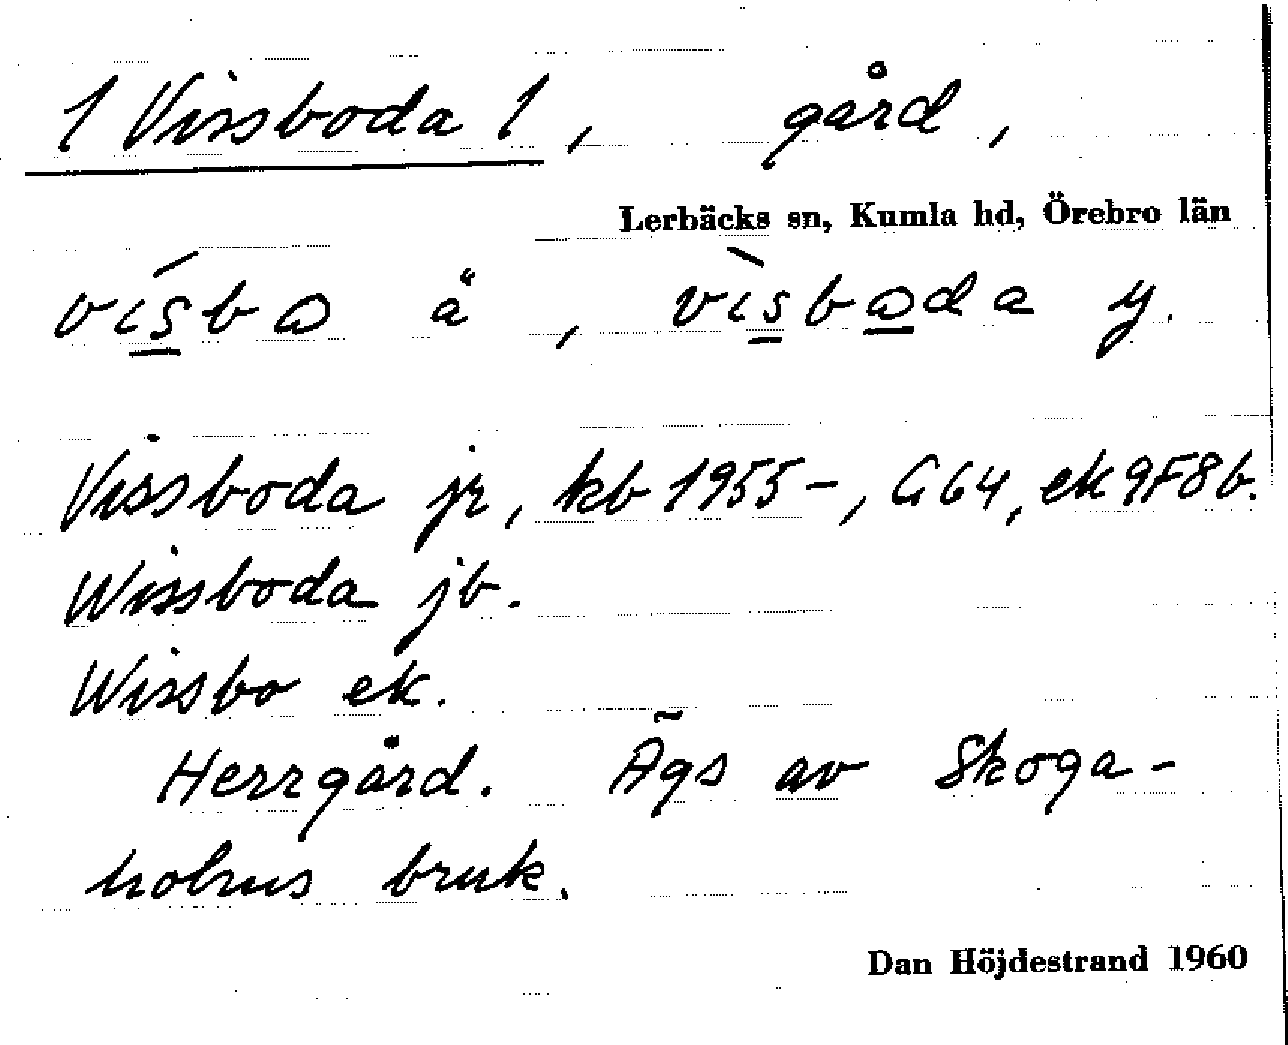 1 Vissboda 1, gård,
Lerbäcks sn, Kumla hd, Örebro län
vísbɷ ä, vìsbɷda y.
Vissboda jr, kb 1955-, G64, ek 9F8b.
Wissboda jb.
Wissbo ek.
Herrgård. Ägs av Skoga-
holms bruk.
Dan Höjdestrand 1960